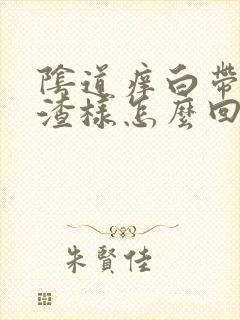 陰道痒白帶
渣樣怎麼回
朱賢佳